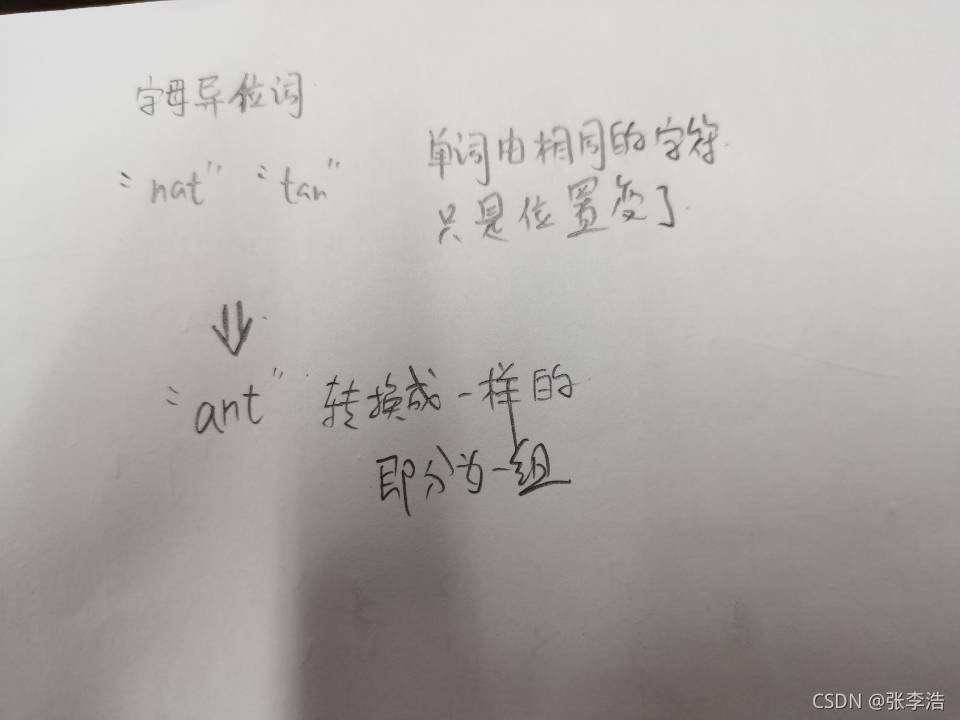 字母异位词
"nat" "tan"
单词由相同的字符
只是位置变了
"ant" 转换成一样的
即分为一组
CSDN @张李浩